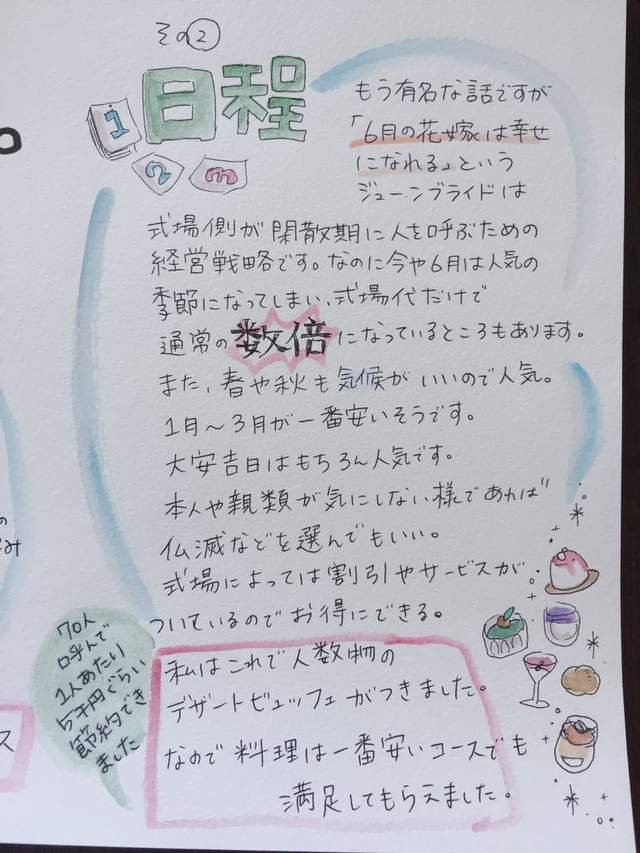 その②
日程
1
2
3
もう有名な話ですが
「6月の花嫁は幸せ
になれる」という
ジューンブライドは
式場側が閑散期に人を呼ぶための
経営戦略です。なのに今や6月は人気の
季節になってしまい、式場代だけで
通常の数倍になっているところもあります。
また、春や秋も気候がいいので人気。
1月〜3月が一番安いそうです。
大安吉日はもちろん人気です。
本人や親類が気にしない様であれば
仏滅などを選んでもいい。
式場によっては割引やサービスが
ついているのでお得にできる。
70人
呼んで
1人あたり
5千円ぐらい
節約でき
ました
私はこれで人数物の
デザートビュッフェがつきました。
なので料理は一番安いコースでも
満足してもらえました。
の
み
ス